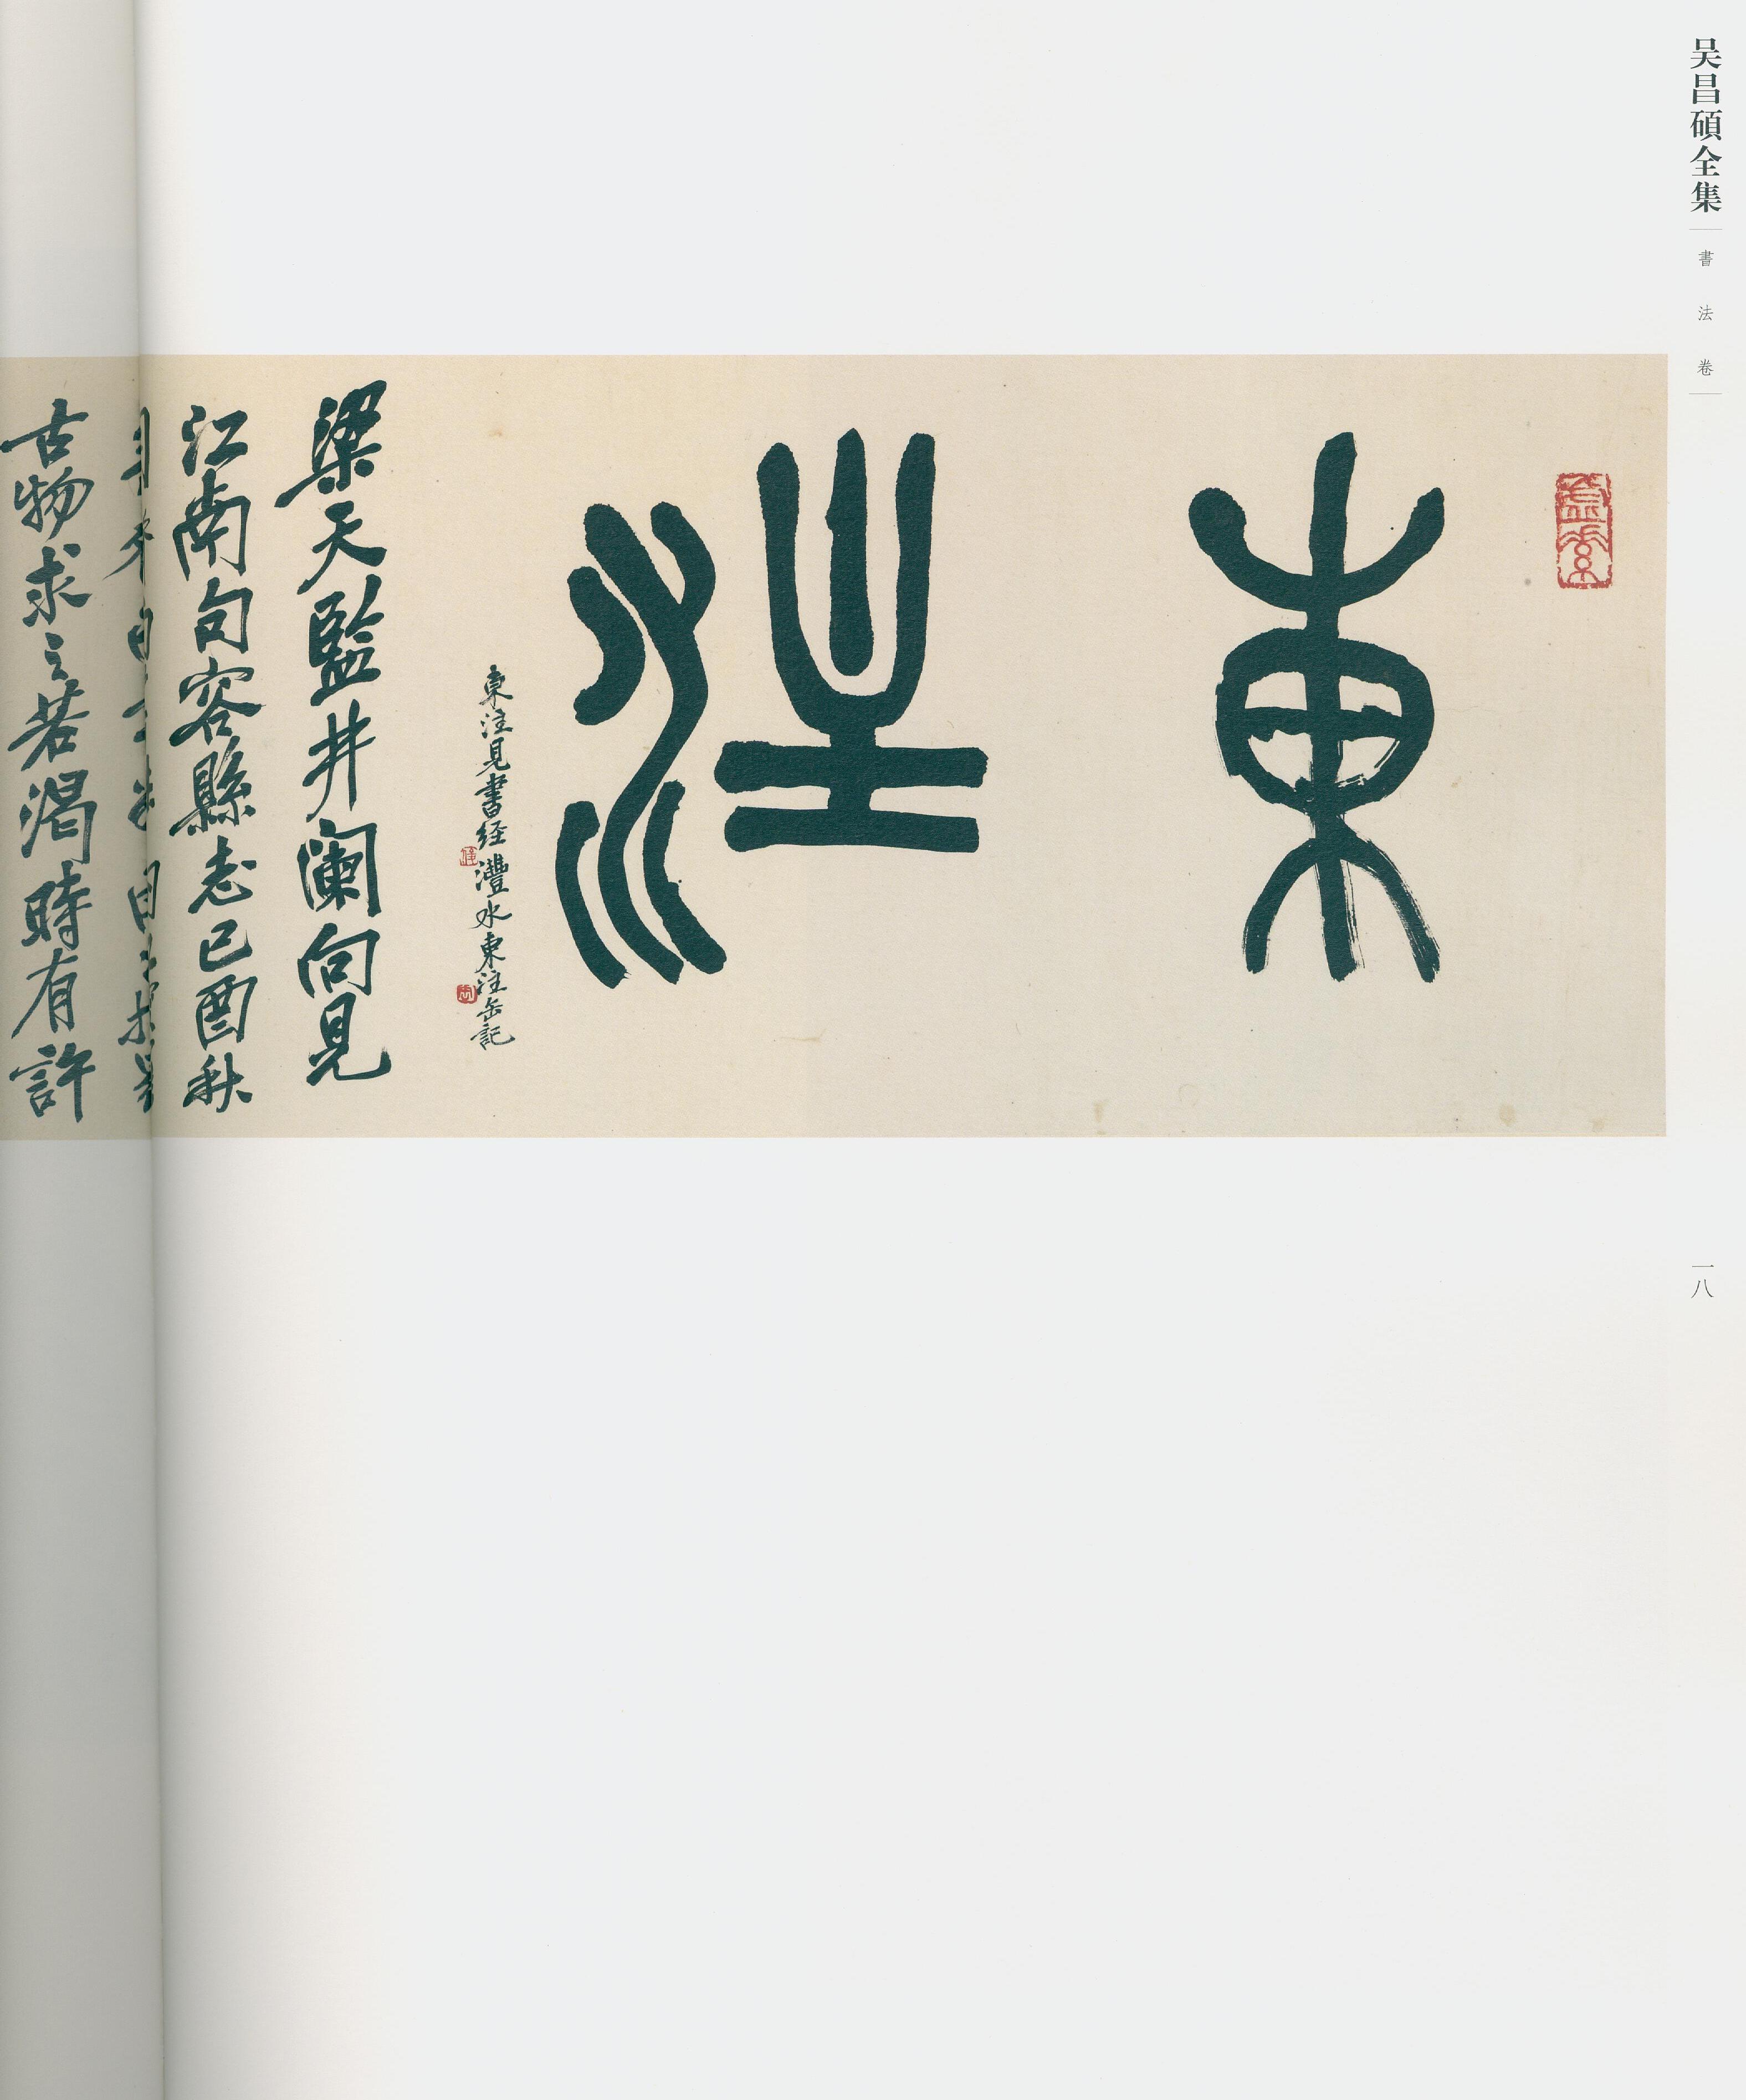 吴昌碩全集
書法卷
一八
東注
東注見書經灃水東注缶記
梁天監井闌向見
江南句容縣志己酉秋
古物求之若渴時有許